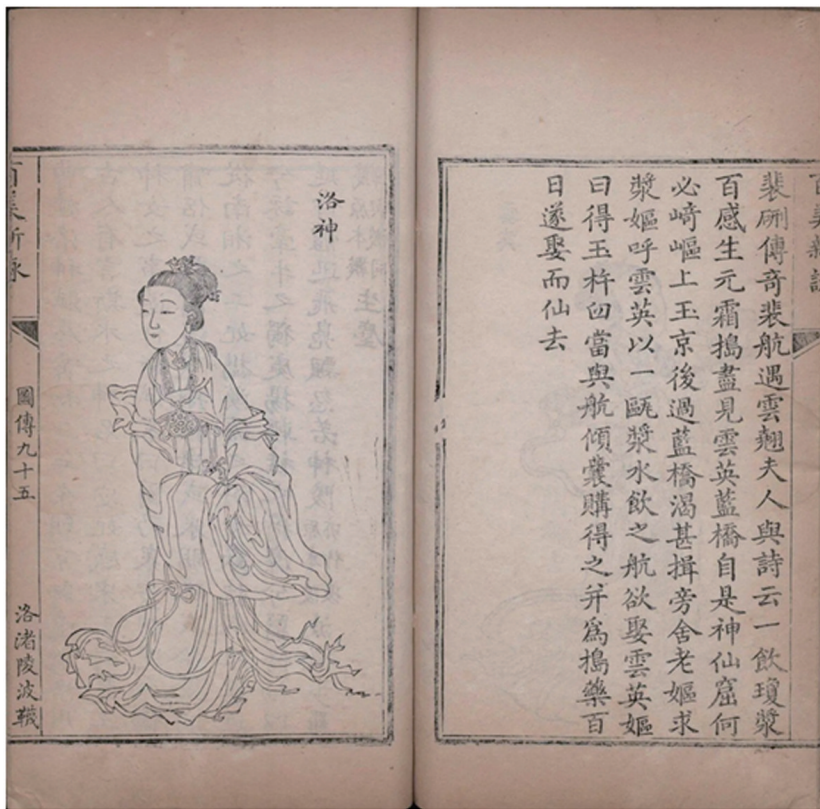 裴硎傳奇裴航遇雲翹夫人與詩云一飲瓊漿
百感生元霜搗盡見雲英藍橋自是神仙窟何
必﨑嶇上玉京後過藍橋渴甚揖旁舍老嫗求
漿嫗呼雲英以一甌漿水飲之航欲娶雲英嫗
曰得玉杵臼當與航傾囊購得之并爲搗藥百
日遂娶而仙去
洛神
圖傳九十五
洛渚陵波韈